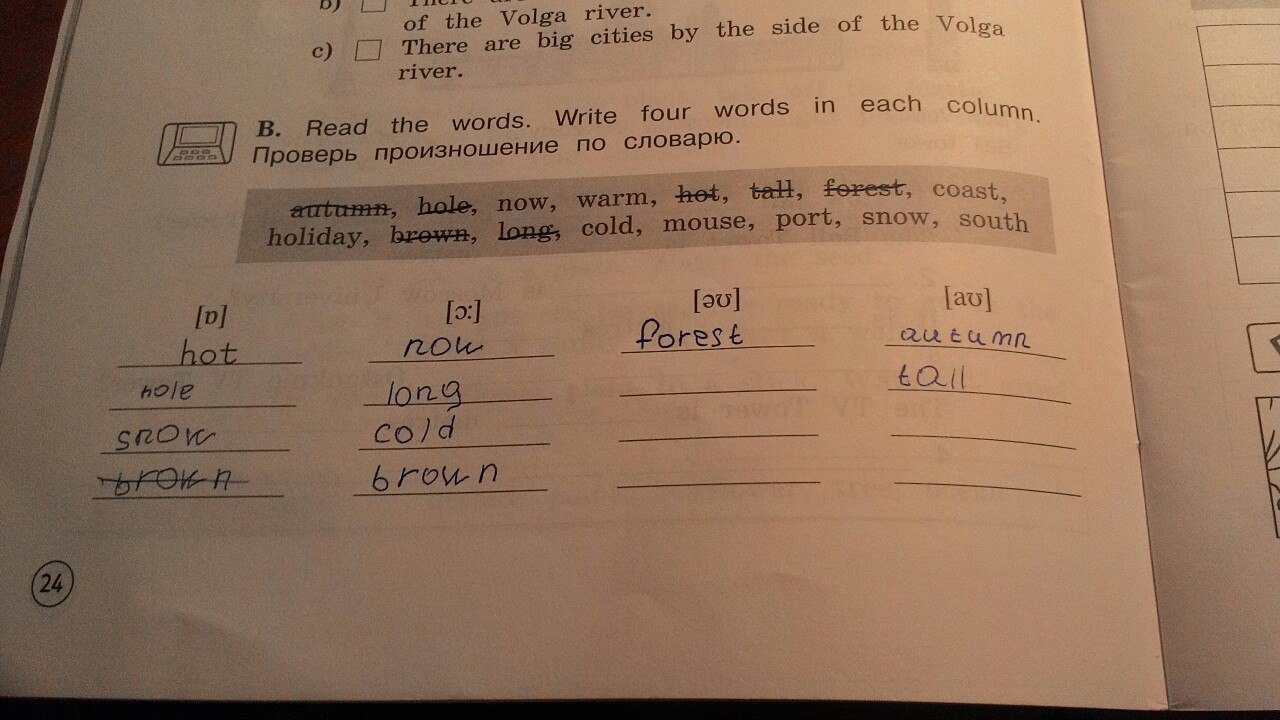 b)
of the Volga river.
c) There are big cities by the side of the Volga
river.
B. Read the words. Write four words in each column.
Проверь произношение по словарю.
autumn, hole, now, warm, hot, tall, forest, coast,
holiday, brown, long, cold, mouse, port, snow, south
[ɒ] [ɔ:] [əʊ] [aʊ]
hot now forest autumn
hole long tall
snow cold
brown brown
24